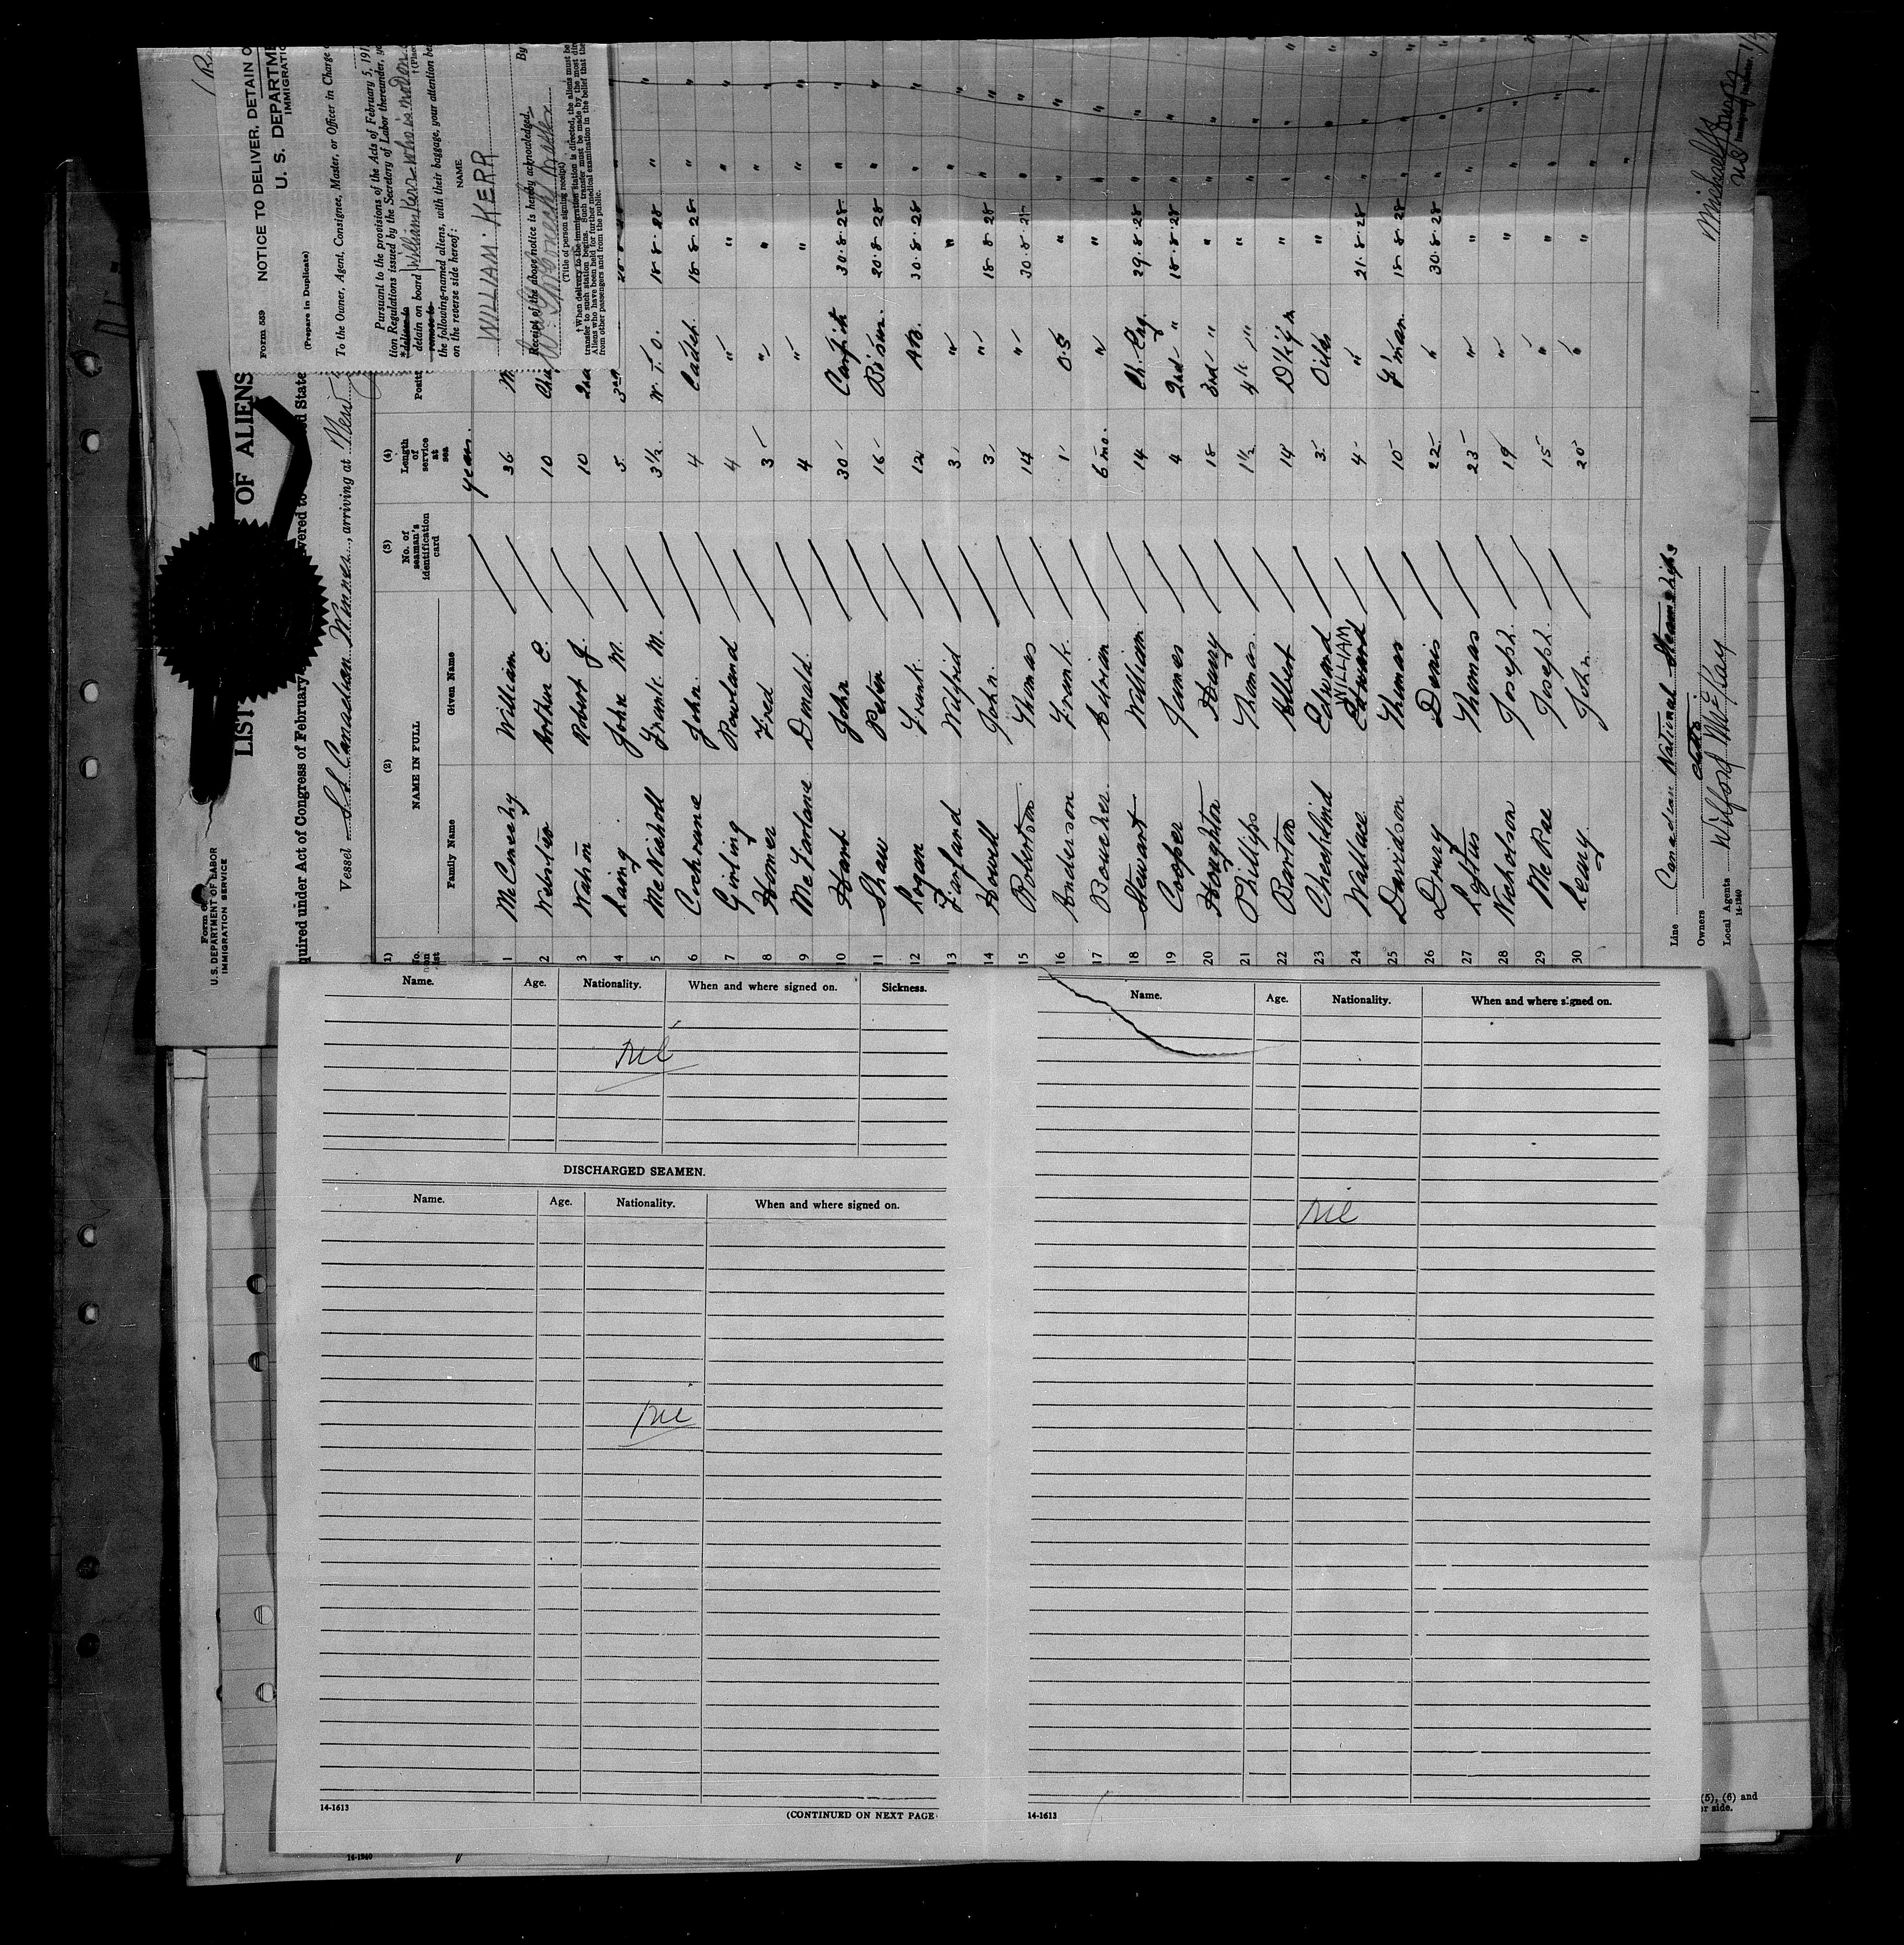 Form
U. S. DEPARTMENT OF LABOR
IMMIGRATION SERVICE
LIST OF ALIENS
quired under Act of Congress of February
vered to
ed State
Vessel S.S. Canadian Winner, arriving at New
Form 559 NOTICE TO DELIVER, DETAIN O
U. S. DEPARTME
IMMIGRATI
(Prepare in Duplicate)
To the Owner, Agent, Consignee, Master, or Officer in Charge
Pursuant to the provisions of the Acts of February 5, 191
tion Regulations issued by the Secretary of Labor thereunder, yo
detain on board William Kerr who is
the following-named aliens, with their baggage, your attention be
on the reverse side hereof:
NAME
WILLIAM KERR
By
Receipt of the above notice is hereby acknowledged
(Title of person signing receipt)
When delivery to the immigration station is directed, the aliens must be
transfer to such station begins. Such transfer must be made by the most dir
Aliens who have been held for further medical examination in the belief that the
from other passengers and from the public.
(1) No. on list (2) NAME IN FULL (3) No. of seaman's identification card (4) Length of service at sea Positi
Family Name Given Name years.
1 McConechy William 36 M
2 Webster Arthur E. 10 Chi
3 Robert J. 10 2nd
4 Laing John M. 5 3rd
5 McNicholl Frank M. 3½ W.T.O. 18 8 28 "
6 Cochrane John. 4 Cadet 18 8 28 "
7 Girling Rowland 4 " " "
8 Homer Fred 3 " " "
9 McFarlane Donald. 4 " " "
10 Hart John 30 30 8 28 "
11 Shaw Peter 16 Bosun. 20 8 28 "
12 Logan Frank 12 A.B. 30 8 28 "
13 Wilfrid 3 " " "
14 Howell John. 3 " 18 8 28 "
15 Robertson Thomas 14 " 30 8 28 "
16 Anderson Frank. 1 O.S " "
17 Boucher. Adrian 6 mo. " " "
18 Stewart William 14 Ch. Eng. 29 8 28 "
19 Cooper James 4 2nd " 18 8 28 "
20 Houghton Henry 18 3rd " " "
21 Phillips Thomas. 1½ 4th " " "
22 Barton Albert 14 " "
23 Edward 3 Oiler " "
24 Wallace WILLIAM Edward 4 " 21 8 28 "
25 Davidson Thomas 10 F'man 18 8 28 "
26 Drury Denis 22 " 30 8 28 "
27 Loftus Thomas 23 " " "
28 Nicholson Joseph. 19 " " "
29 McRae Joseph. 15 " " "
30 Leary John 20 " " "
Line Canadian National Steamships
Owners ditto
Local Agents Wilford McKay
14-1240
Name. Age. Nationality. When and where signed on. Sickness.
nil
DISCHARGED SEAMEN.
Name. Age. Nationality. When and where signed on.
nil
14-1613
(CONTINUED ON NEXT PAGE
Name. Age. Nationality. When and where signed on.
nil
14-1613
(5), (6) and
er side.
14-1240